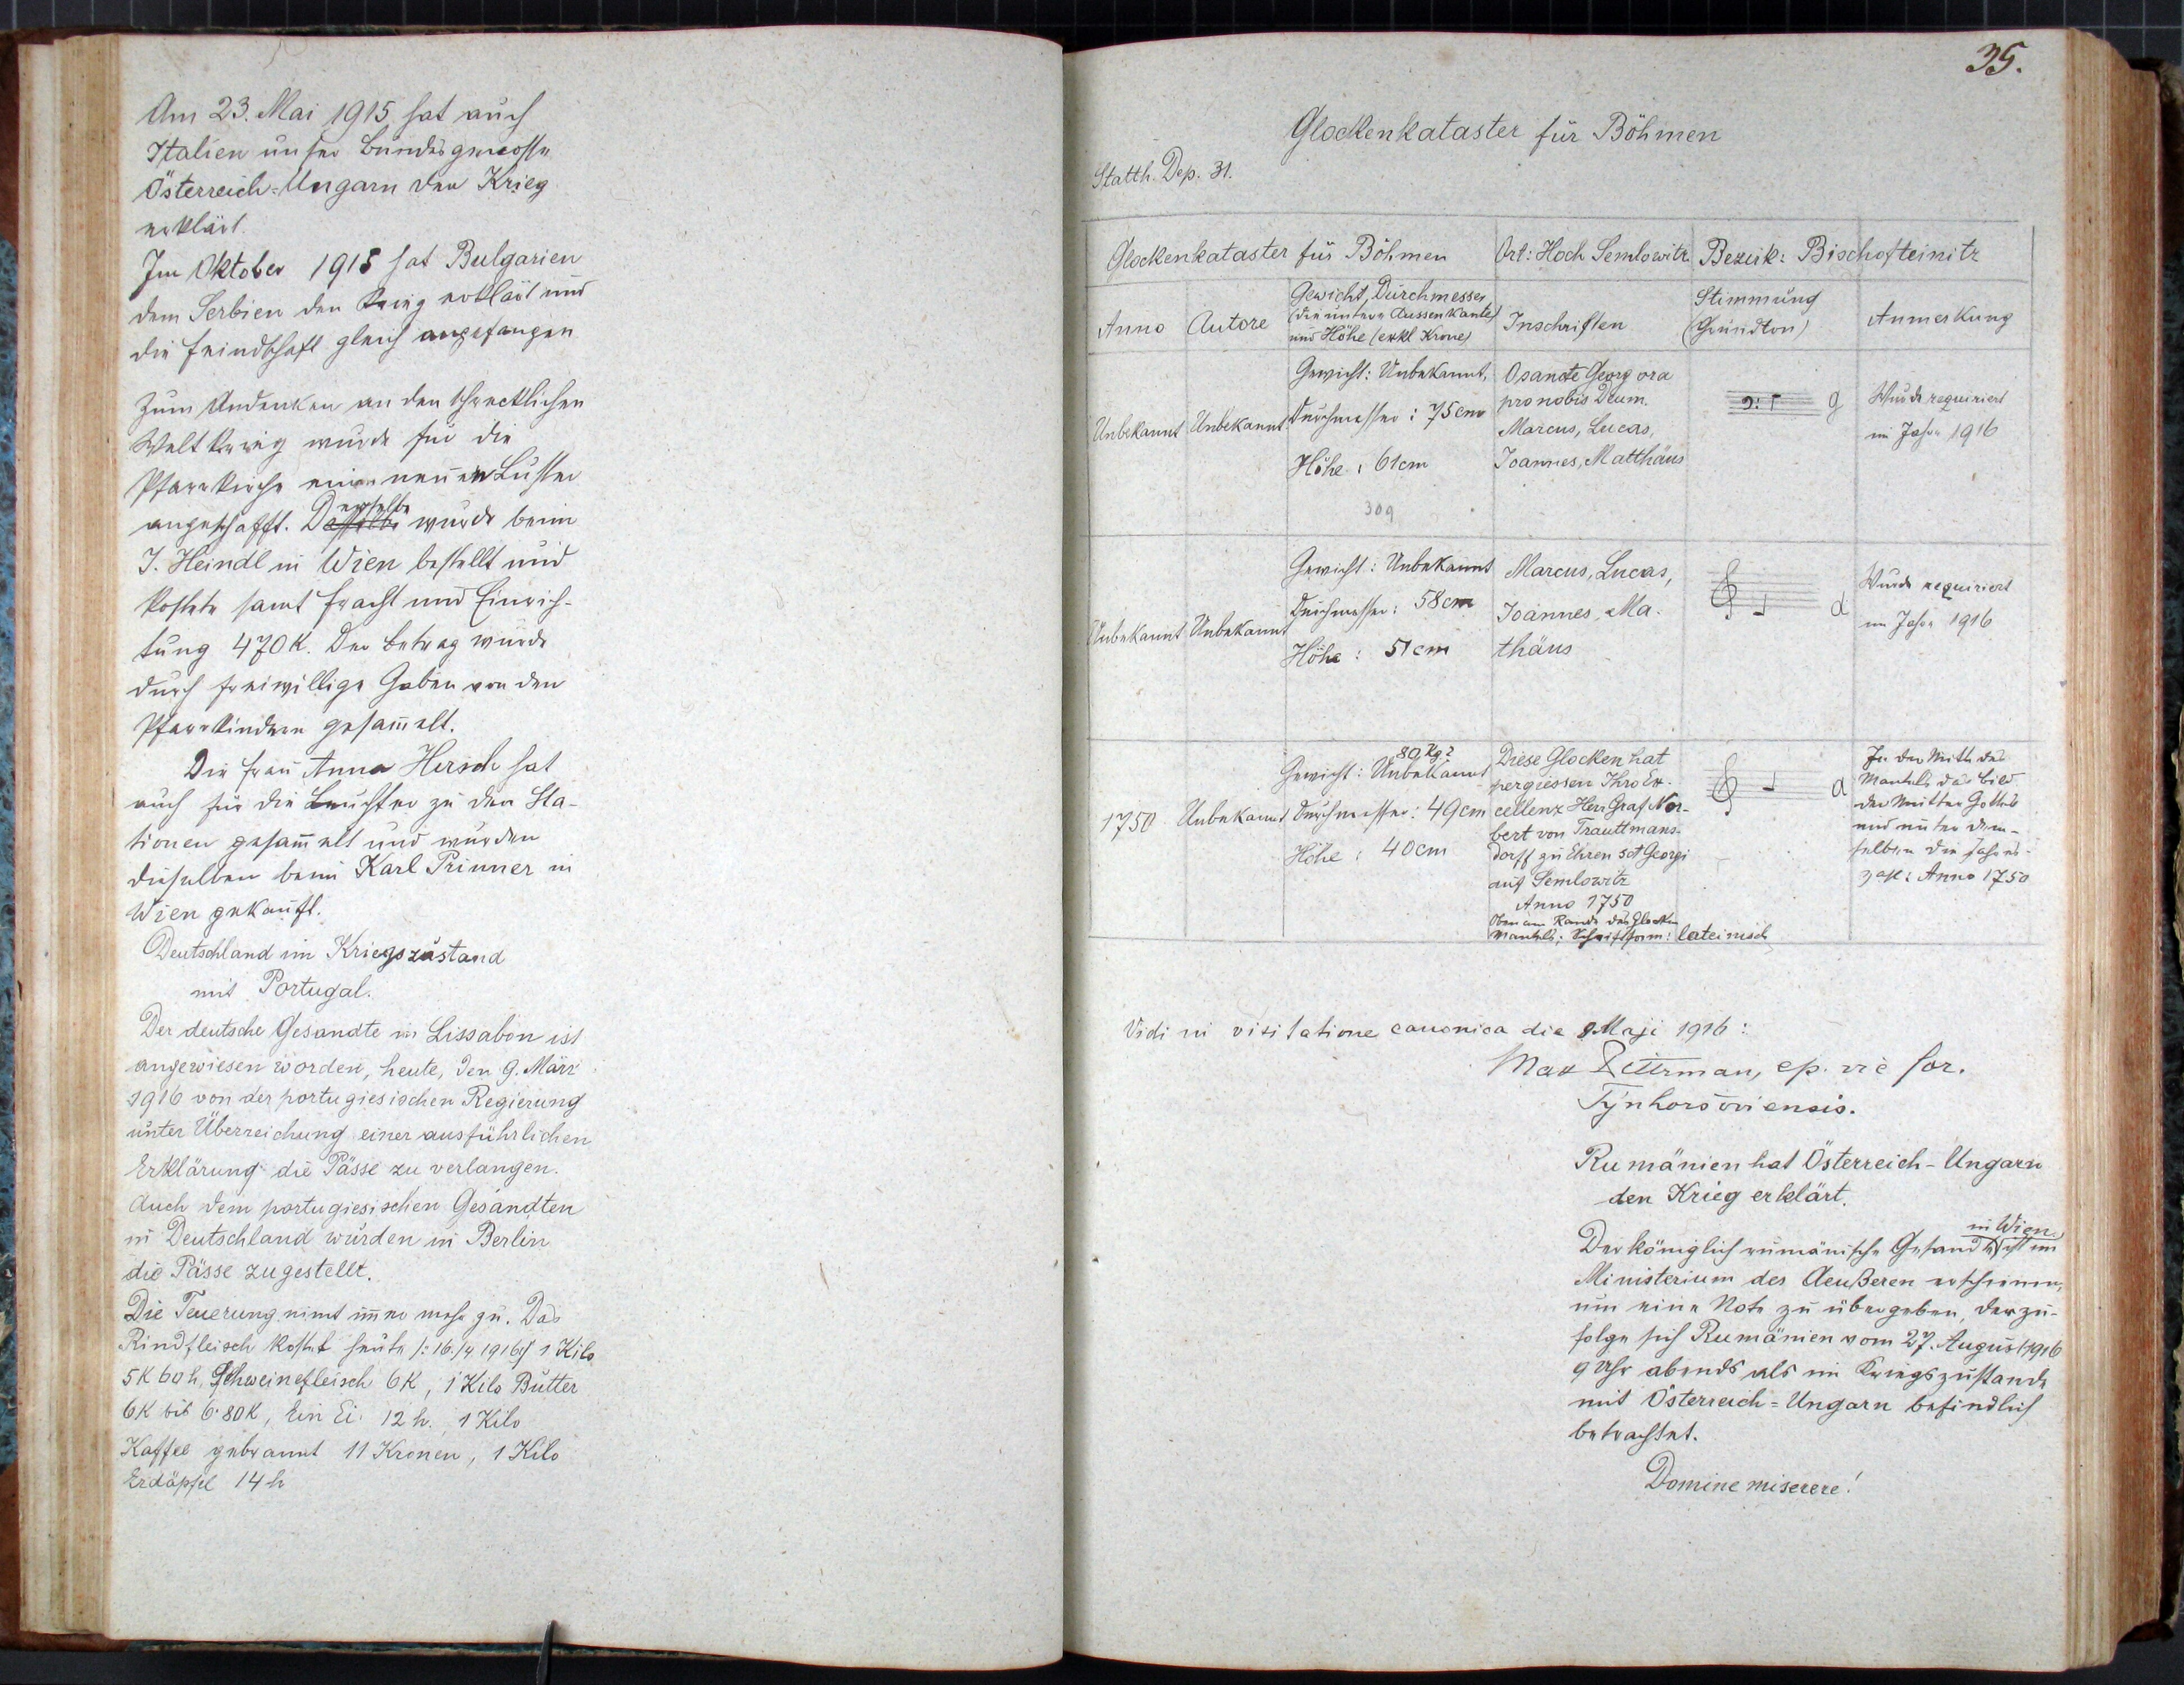 Am 23. Mai 1915 hat auch
Italien unser Bundesgenosse
Österreich-Ungarn den Krieg
erklärt.
Im Oktober 1915 hat Bulgarien
dem Serbien den Krieg erklärt und
die Feindschaft gleich angefangen
Zum Andenken an den schrecklichen
Weltkrieg wurde für die
Pfarrkirche einen neuen Luster
angeschafft. Derselbe wurde beim
J. Heindl in Wien bestellt und
kostete samt Fracht und Einrich-
tung 470 K. Der Betrag wurde
durch freiwillige Gaben von den
Pfarrkindern gesam̄elt.
Die Frau Anna Hirsch hat
auch für die Leuchter zu den Sta-
tionen gesam̄elt und wurden
dieselben beim Karl Prinner in
Wien gekauft.
Deutschland im Kriegszustand
mit Portugal.
Der deutsche Gesandte in Lissabon ist
angewiesen worden, heute, den 9. März
1916 von der portugiesischen Regierung
unter Überreichung einer ausführlichen
Erklärung die Pässe zu verlangen.
Auch dem portugiesischen Gesandten
in Deutschland wurden in Berlin
die Pässe zugestellt.
Die Teuerung nimt im̄er mehr zu. Das
Rindfleisch kostet heute /: 16./4 1916 :/ 1 Kilo
5K 60h, Schweinefleisch 6K, 1 Kilo Butter
6K bis 6·80K, Ein Ei 12 h., 1 Kilo
Kaffee gebrannt 11 Kronen, 1 Kilo
Erdäpfel 14 h
35.
Glockenkataster für Böhmen
Statth. Dep. 31.
Glockenkataster für Böhmen Ort: Hoch Semlowitz Bezirk: Bischofteinitz
Anno Autore Gewicht, Durchmesser (die untere Aussenkante) und Höhe (exkl Krone) Inschriften Stimmung (Grundton) Anmerkung
Unbekannt Unbekannt
Gewicht: Unbekannt,
Durchmesser: 75cm
Höhe: 61cm
309
O sancte Georg ora
pro nobis Deum.
Marcus, Lucas,
Joannes, Matthäus
g
Wurde requiriert
im Jahre 1916
Unbekannt Unbekannt
Gewicht: Unbekannt
Durchmesser: 58cm
Höhe: 51cm
Marcus, Lucas,
Joannes, Ma-
thäus
d
Wurde requiriert
im Jahre 1916
1750 Unbekannt
80 Kg?
Gewicht: Unbekannt
Durchmesser: 49cm
Höhe: 40cm
Diese Glocken hat
pergiessen Ihro Ex-
cellenz Herr Graf Nor-
bert von Trauttmans-
dorff zu Ehren sct Georgi
auf Semlowitz
Anno 1750
Oben am Rande des Glocken
mantels; Schriftform: lateinisch
a
In der Mitte des
Mantels das Bild
der Mutter Gottes
und unter dem-
selben die Jahres-
zahl: Anno 1750
Vidi in visitatione canonica die 9. Maji 1916:
Max ep. vic for.
Týnhoršoviensis.
Rumänien hat Österreich-Ungarn
den Krieg erklärt.
in Wien
Der königlich rumänische Gesandte ist im
Ministerium des Aeußeren erschienen,
um eine Note zu übergeben, derzu-
folge sich Rumänien vom 27. August 1916
9 Uhr abends als im Kriegszustande
mit Österreich-Ungarn befindlich
betrachtet.
Domine miserere!